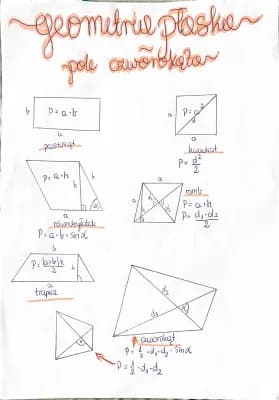 geometria płaska
pole czworokąta
b
P=a·b
a
prostokąt
a
P=a²
d
a
kwadrat
P=d²/2
P=a·h
h
b
α
a
równoległobok
P=a·b·sinα
a
h
d₁
d₂
a
romb
P=a·h
P=d₁·d₂/2
b
P=(a+b)h/2
h
a
trapez
d₂
d₁
α
czworokąt
P=1/2·d₁·d₂·sinα
P=1/2·d₁·d₂